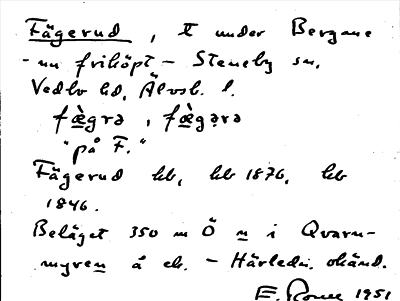 Fägerud, t under Bergane
- nu friköpt - Steneby sn,
Vedbo hd, Älvsb. l.
fæ̀grə, fæ̀gərə
"på F."
Fägerud hb, hb 1876, hb
1846.
Beläget 350 m Ö n i Qvarn-
myren å ek. - Härledn. okänd.
E. 1951